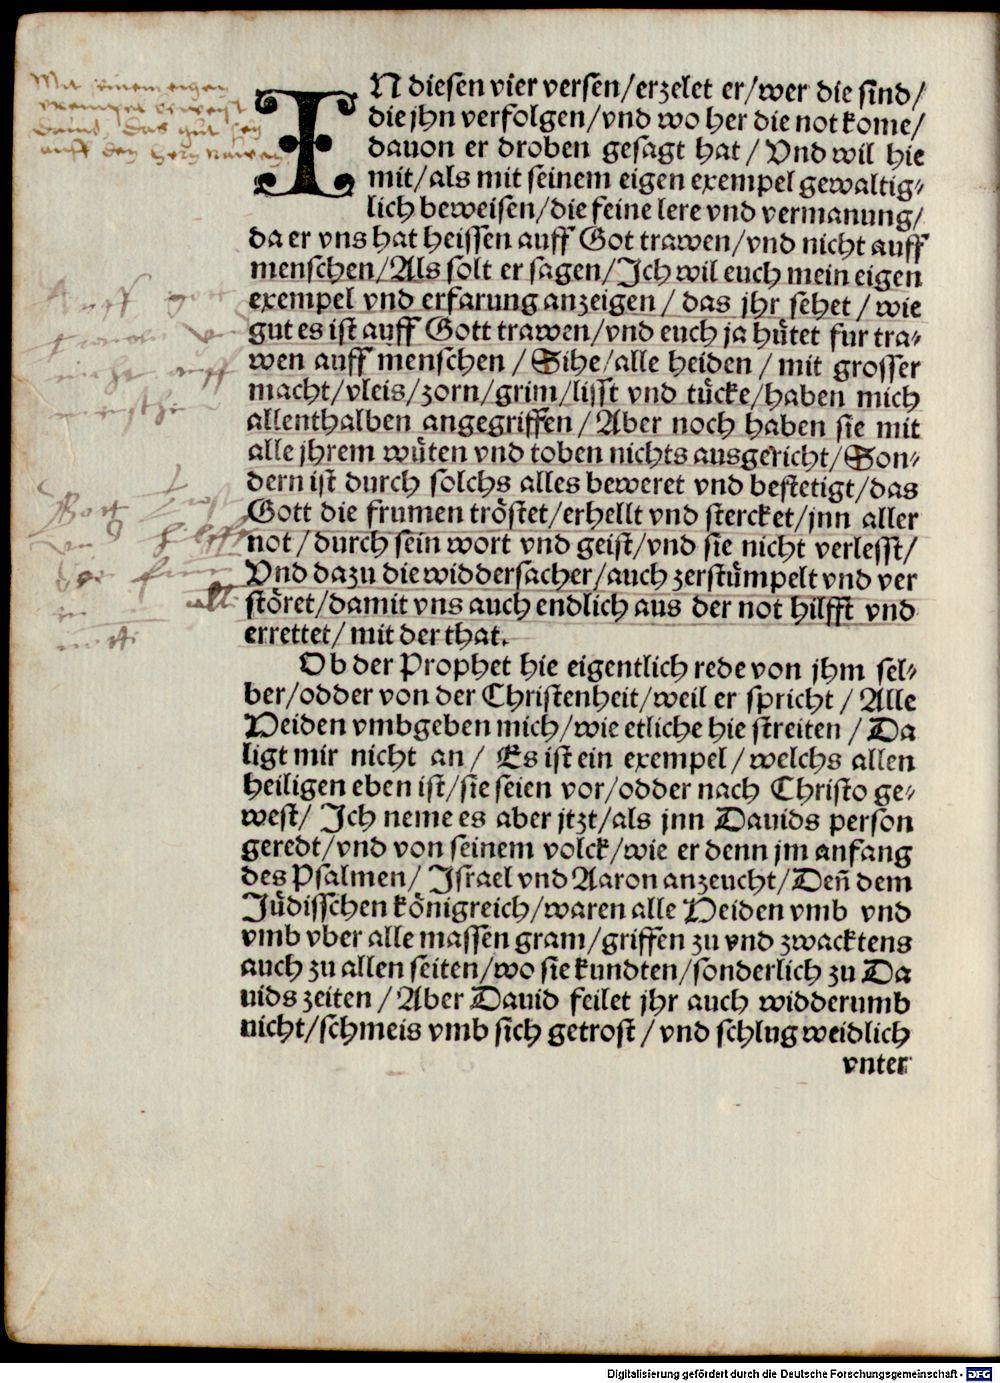 Mit seinem eigen
exempel beweist
Dauid, das gut sey
auff den hern trawen
IN diesen vier versen/erzelet er/wer die sind/
die jhn verfolgen/vnd wo her die not kome/
dauon er droben gesagt hat/Vnd wil hie
mit/als mit seinem eigen exempel gewaltig⸗
lich beweisen/die feine lere vnd vermanung/
da er vns hat heissen auff Got trawen/vnd nicht auff
menschen/Als solt er sagen/Ich wil euch mein eigen
exempel vnd erfarung anzeigen/das jhr sehet/wie
gut es ist auff Gott trawen/vnd euch ja hütet fur tra⸗
wen auff menschen/Sihe/alle heiden/mit grosser
macht/vleis/zorn/grim/lisst vnd tücke/haben mich
allenthalben angegriffen/Aber noch haben sie mit
alle jhrem wüten vnd toben nichts ausgericht/Son⸗
dern ist durch solchs alles beweret vnd bestetigt/das
Gott die frumen tröstet/erhellt vnd stercket/jnn aller
not/durch sein wort vnd geist/vnd sie nicht verlesst/
Vnd dazu die widdersacher/auch zerstümpelt vnd ver
störet/damit vns auch endlich aus der not hilfft vnd
errettet/mit der that.
Auff gott
trawen vnd
nicht auff
menschen
Gott trost
vnd hilfft
den frum
alle
Ob der Prophet hie eigentlich rede von jhm sel⸗
ber/odder von der Christenheit/weil er spricht/Alle
Heiden vmbgeben mich/wie etliche hie streiten/Da
ligt mir nicht an/Es ist ein exempel/welchs allen
heiligen eben ist/sie seien vor/odder nach Christo ge⸗
west/Ich neme es aber jtzt/als jnn Dauids person
geredt/vnd von seinem volck/wie er denn jm anfang
des Psalmen/Israel vnd Aaron anzeucht/Deñ dem
Jüdisschen königreich/waren alle Heiden vmb vnd
vmb vber alle massen gram/griffen zu vnd zwacktens
auch zu allen seiten/wo sie kundten/sonderlich zu Da
uids zeiten/Aber Dauid feilet jhr auch widderumb
nicht/schmeis vmb sich getrost/vnd schlug weidlich
vnter
Digitalisierung gefördert durch die Deutsche Forschungsgemeinschaft - DFG